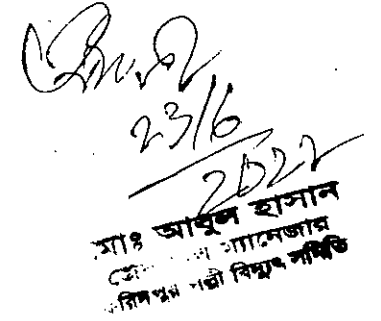 23/6
2022
মোঃ আবুল হাসান
ম্যানেজার
ফরিদপুর পল্লী বিদ্যুৎ সমিতি